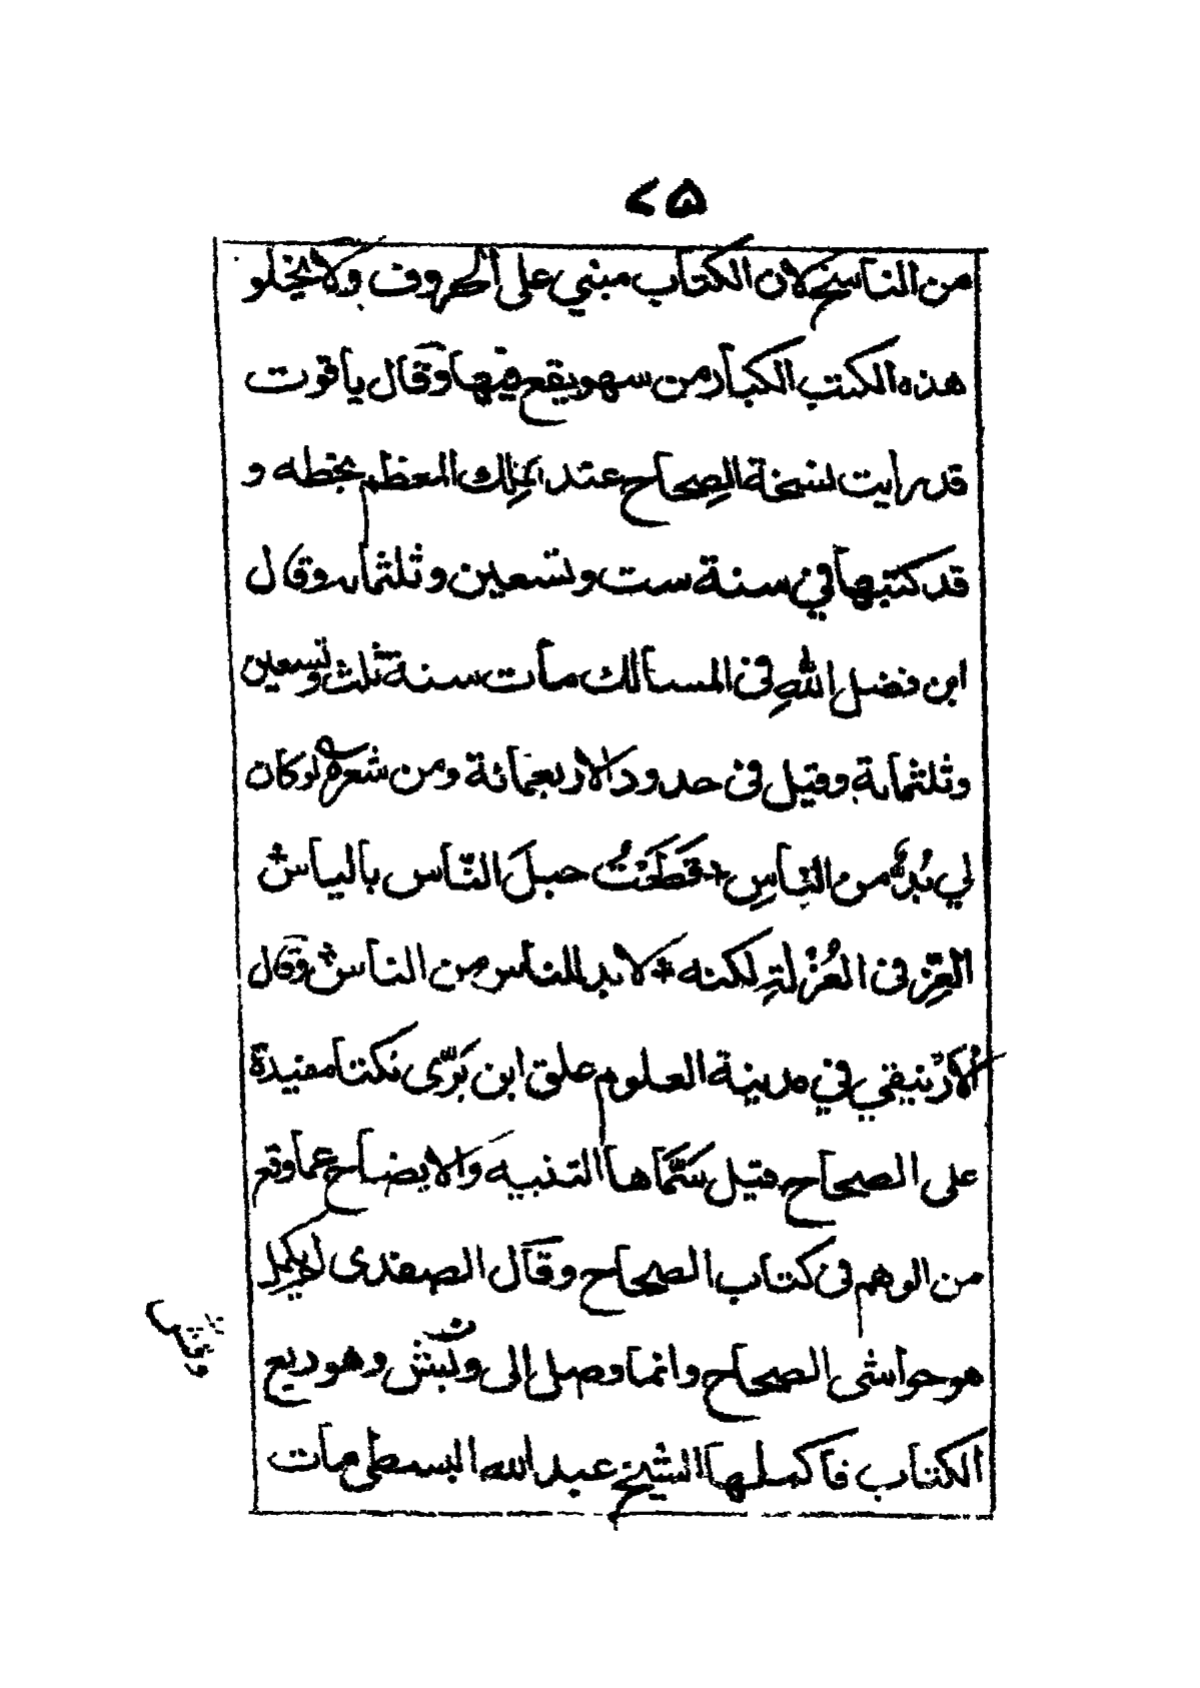 ٢٥
من الناسخ لان الكتاب مبني على الحروف ولا يخلو
هذه الكتب الكبار من سهو يقع فيها وقال ياقوت
قد رايت نسخة الصحاح عند الملك المعظم بخطه و
قد كتبها في سنة ست وتسعين وثلثمايه وقال
ابن فضل اللهِ فى المسالك مات سنة ثلث وتسعين
وثلثماية وقيل فى حدود الاربعمائة ومن شعره لوكان
لي بُدٌّ من النّاسِ + قَطَعْتُ حبلَ النّاس بالياس
العِزّ فى العُزْلةِ لكنه * لا بد للناس من الناس وقال
الأزنيقي في مدينة العلوم علق ابن بَرّى نكتا مفيدة
على الصحاح قيل سمّاها التنبيه والايضاح عما وقع
من الوهم فى كتاب الصحاح وقال الصفدى لم يكمل
هو حواشى الصحاح وانما وصل إلى وقش وهو ربع
الكتاب فاكملها الشيخ عبد الله البسطى مات
وقش